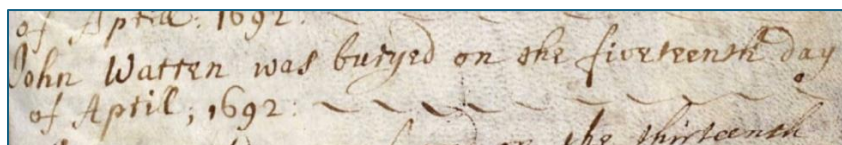 of April: 1692:
John Warren was buryed on the fiveteenth day
of April; 1692:
on the thirteenth